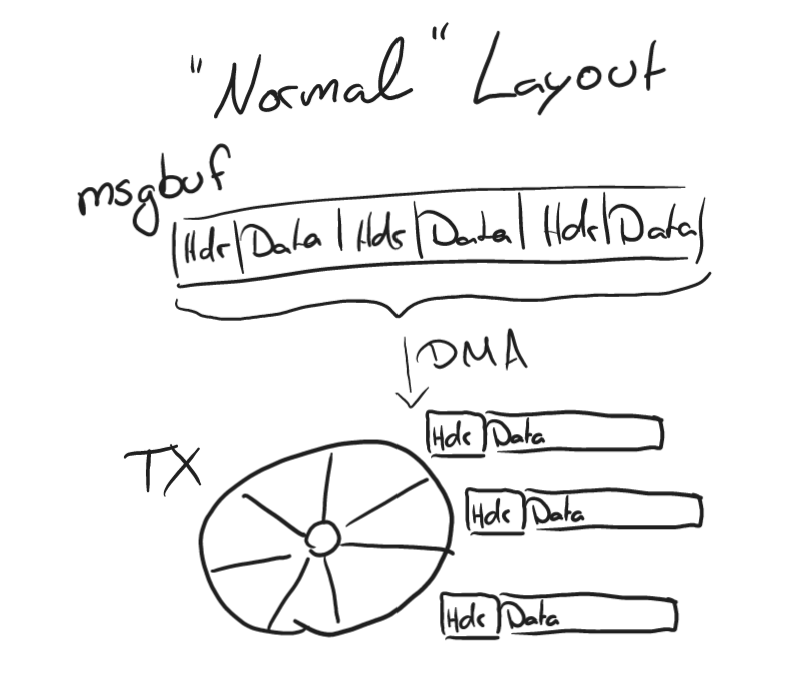 "Normal" Layout
msgbuf
Hdr Data Hdr Data Hdr Data
DMA
Hdr Data
TX
Hdr Data
Hdr Data